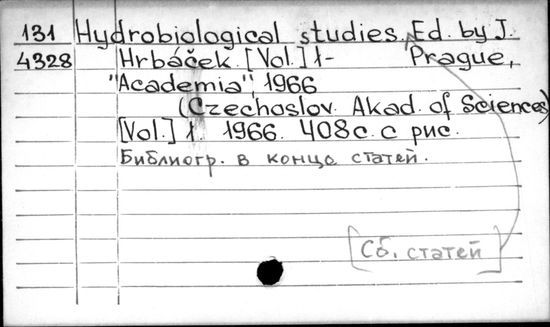 131 Hydrobiological studies. Ed. by J.
4328 Hrbáček. [Vol.] 1- Prague,
"Academia", 1966
(Czechoslov. Akad. of Sciences)
[Vol.] 1. 1966. 408 с. с рис.
Библиогр. в конце статей.
[Сб. статей]